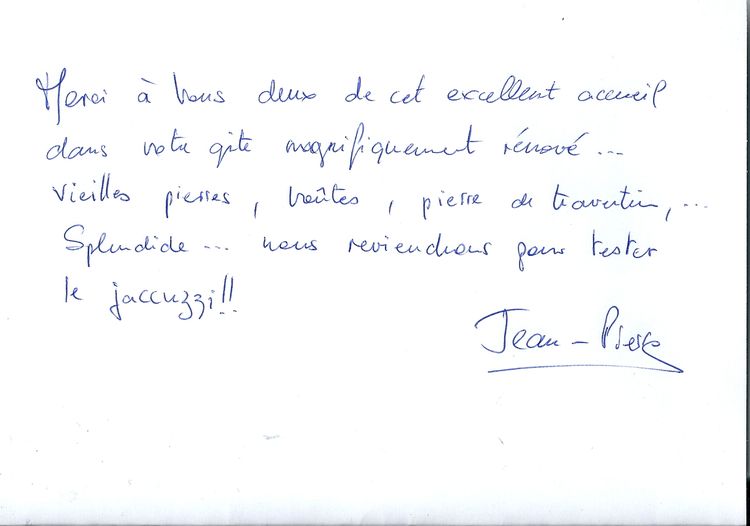 Merci à vous deux de cet excellent accueil
dans votre gîte magnifiquement rénové ...
Vieilles pierres, voûtes, pierre de travertin, ...
Splendide ... nous reviendrons pour tester
le jaccuzzi!!
Jean-Pierre